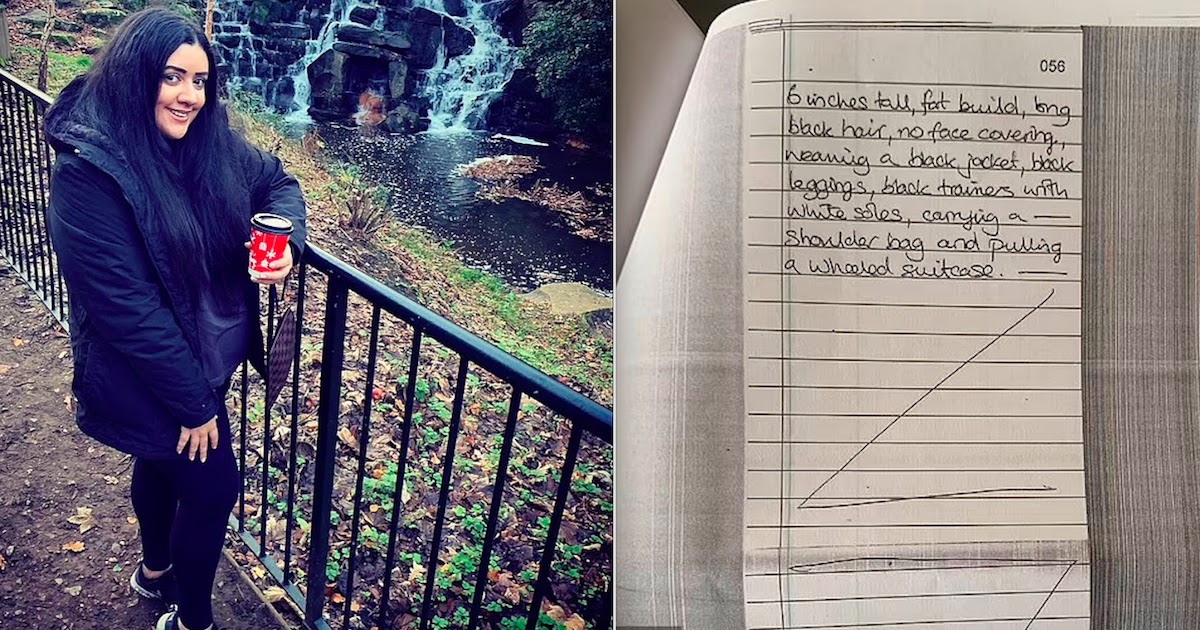 056
6 inches tall, fat build, long
black hair, no face covering,
wearing a black jacket, black
leggings, black trainers with
white soles, carrying a —
shoulder bag and pulling
a wheeled suitcase. —